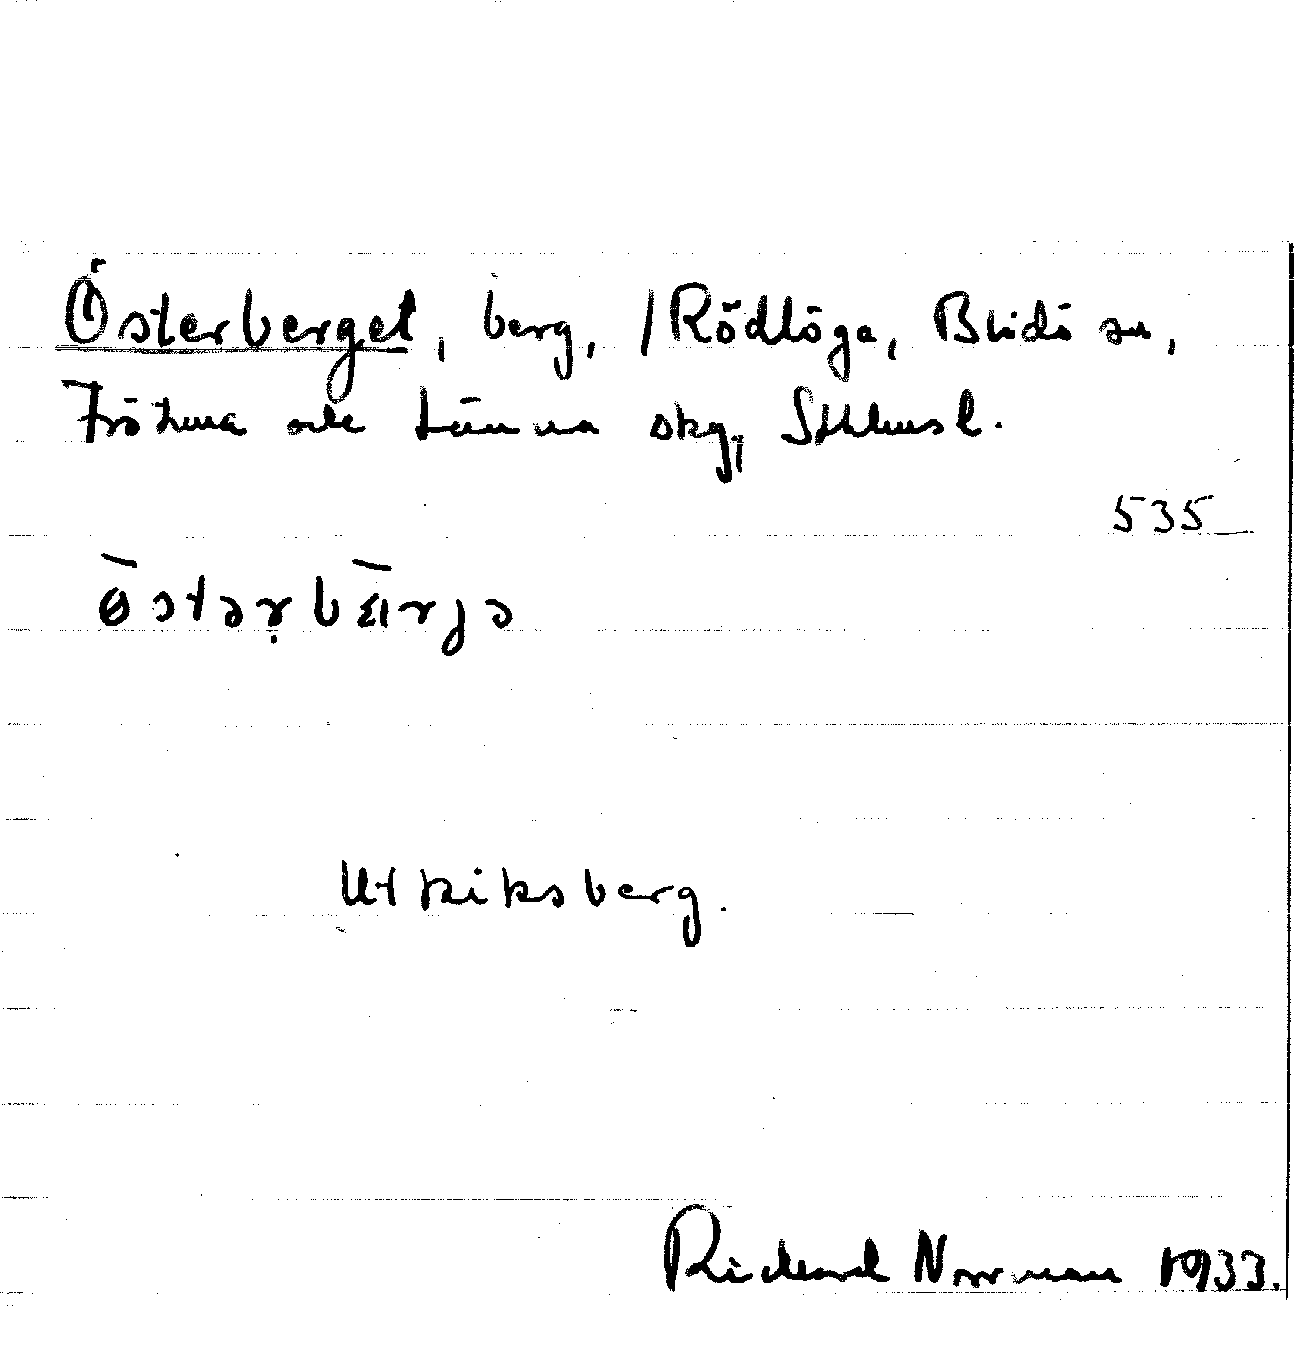 Österberget, berg, /Rödlöga, Blidö sn,
Frötuna och Länna skg, Sthlmsl.
535
ō̵stər̤bǟrjə
Utkiksberg.
Rickard Norrman 1933.